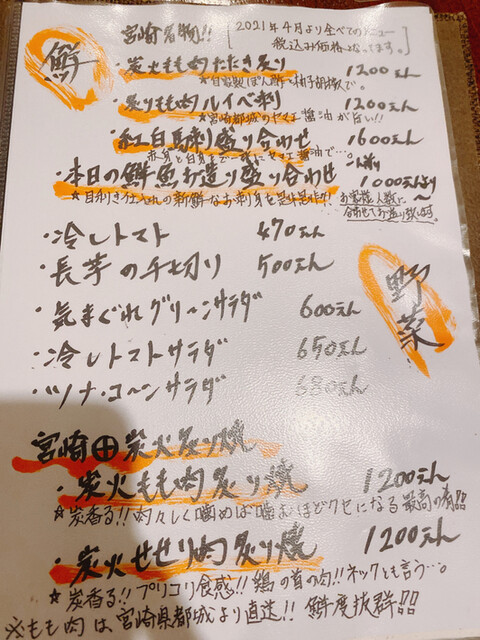 鮮
宮崎名物!!
2021年4月より全てのメニュー
税込み価格となってます。
・炭火もも肉たたき炙り 1200えん
☆自家製ぽん酢と柚子胡椒で。
・炙りもも肉ルイベ刺 1200えん
☆宮崎都城のヤマエ醤油が旨い!!
・紅白馬刺し盛り合わせ 1600えん
赤身と白身まで一緒にヤマエ醤油で…。
・本日の鮮魚お造り盛り合わせ 1000えんより〜
☆目利き仕入れの新鮮なお刺身を是非是非!!
お客様人数に
合わせてお造り致します
野菜
・冷しトマト 470えん
・長芋の千切り 500えん
・気まぐれグリーンサラダ 600えん
・冷しトマトサラダ 650えん
・ツナ・コーンサラダ 680えん
宮崎 炭火炙り焼
・炭火もも肉炙り焼 1200えん
☆炭香る!!肉々しく噛めば噛むほどクセになる最高の肴!!
・炭火せせり肉炙り焼 1200えん
☆炭香る!!プリコリ食感!!鶏の首の肉!!ネックとも言う…。
※もも肉は宮崎県都城より直送!!鮮度抜群!!